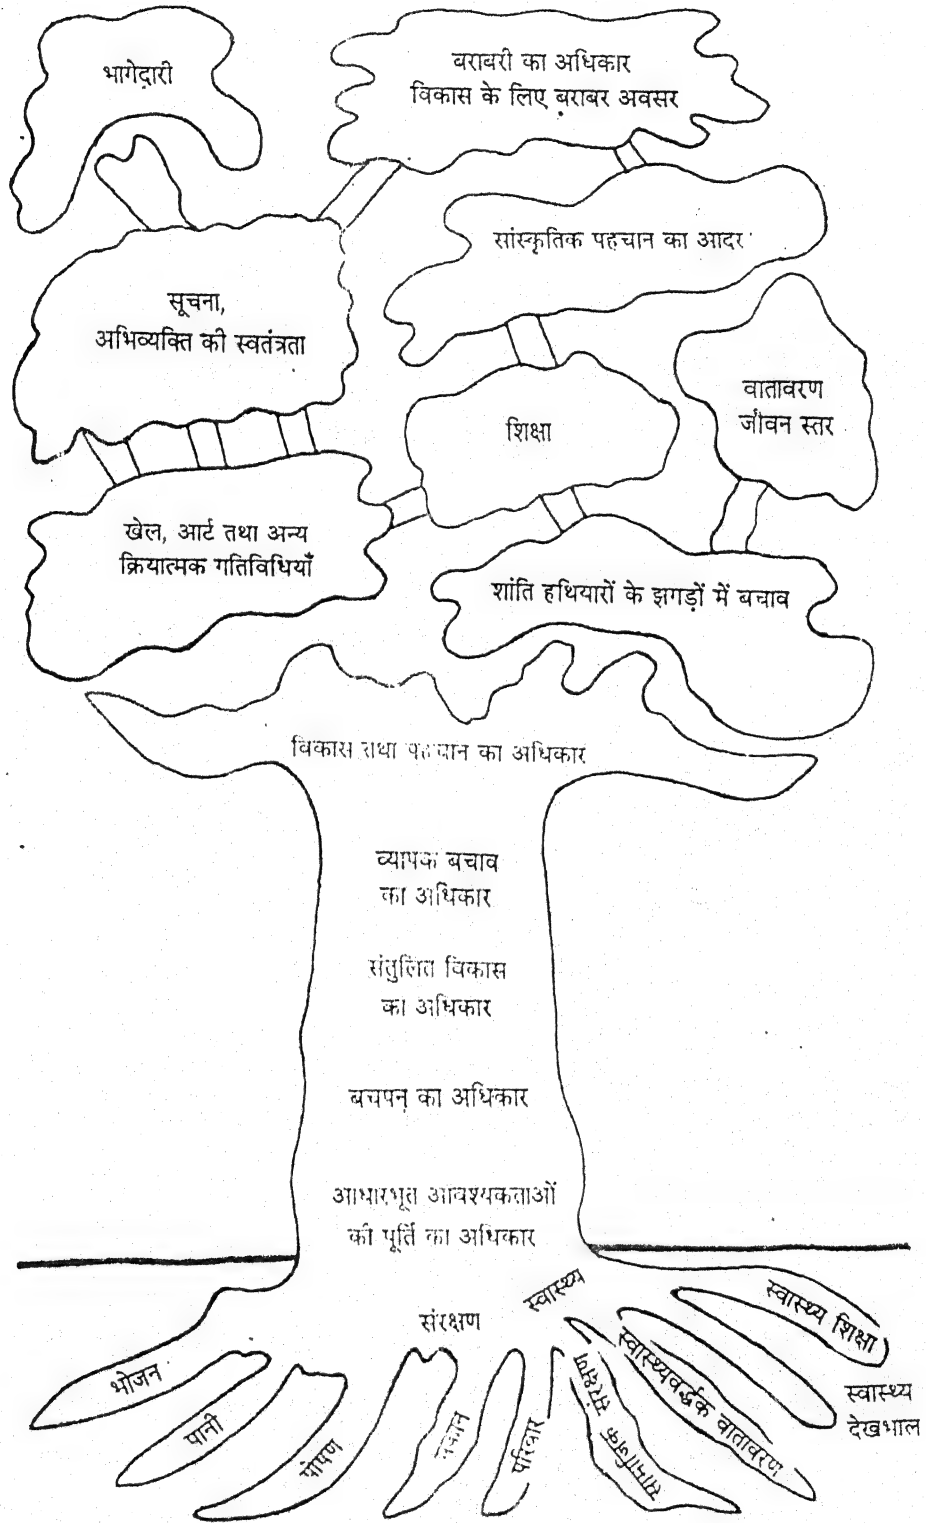 भागेदारी
बराबरी का अधिकार
विकास के लिए बराबर अवसर
सांस्कृतिक पहचान का आदर
सूचना,
अभिव्यक्ति की स्वतंत्रता
वातावरण
जीवन स्तर
शिक्षा
खेल, आर्ट तथा अन्य
क्रियात्मक गतिविधियाँ
शांति हथियारों के झगड़ों में बचाव
विकास तथा पहचान का अधिकार
व्यापक बचाव
का अधिकार
संतुलित विकास
का अधिकार
बचपन का अधिकार
आधारभूत आवश्यकताओं
की पूर्ति का अधिकार
संरक्षण
स्वास्थ्य
भोजन
पानी
पोषण
मकान
परिवार
सामाजिक संरक्षण
स्वास्थ्यवर्द्धक वातावरण
स्वास्थ्य शिक्षा
स्वास्थ्य
देखभाल